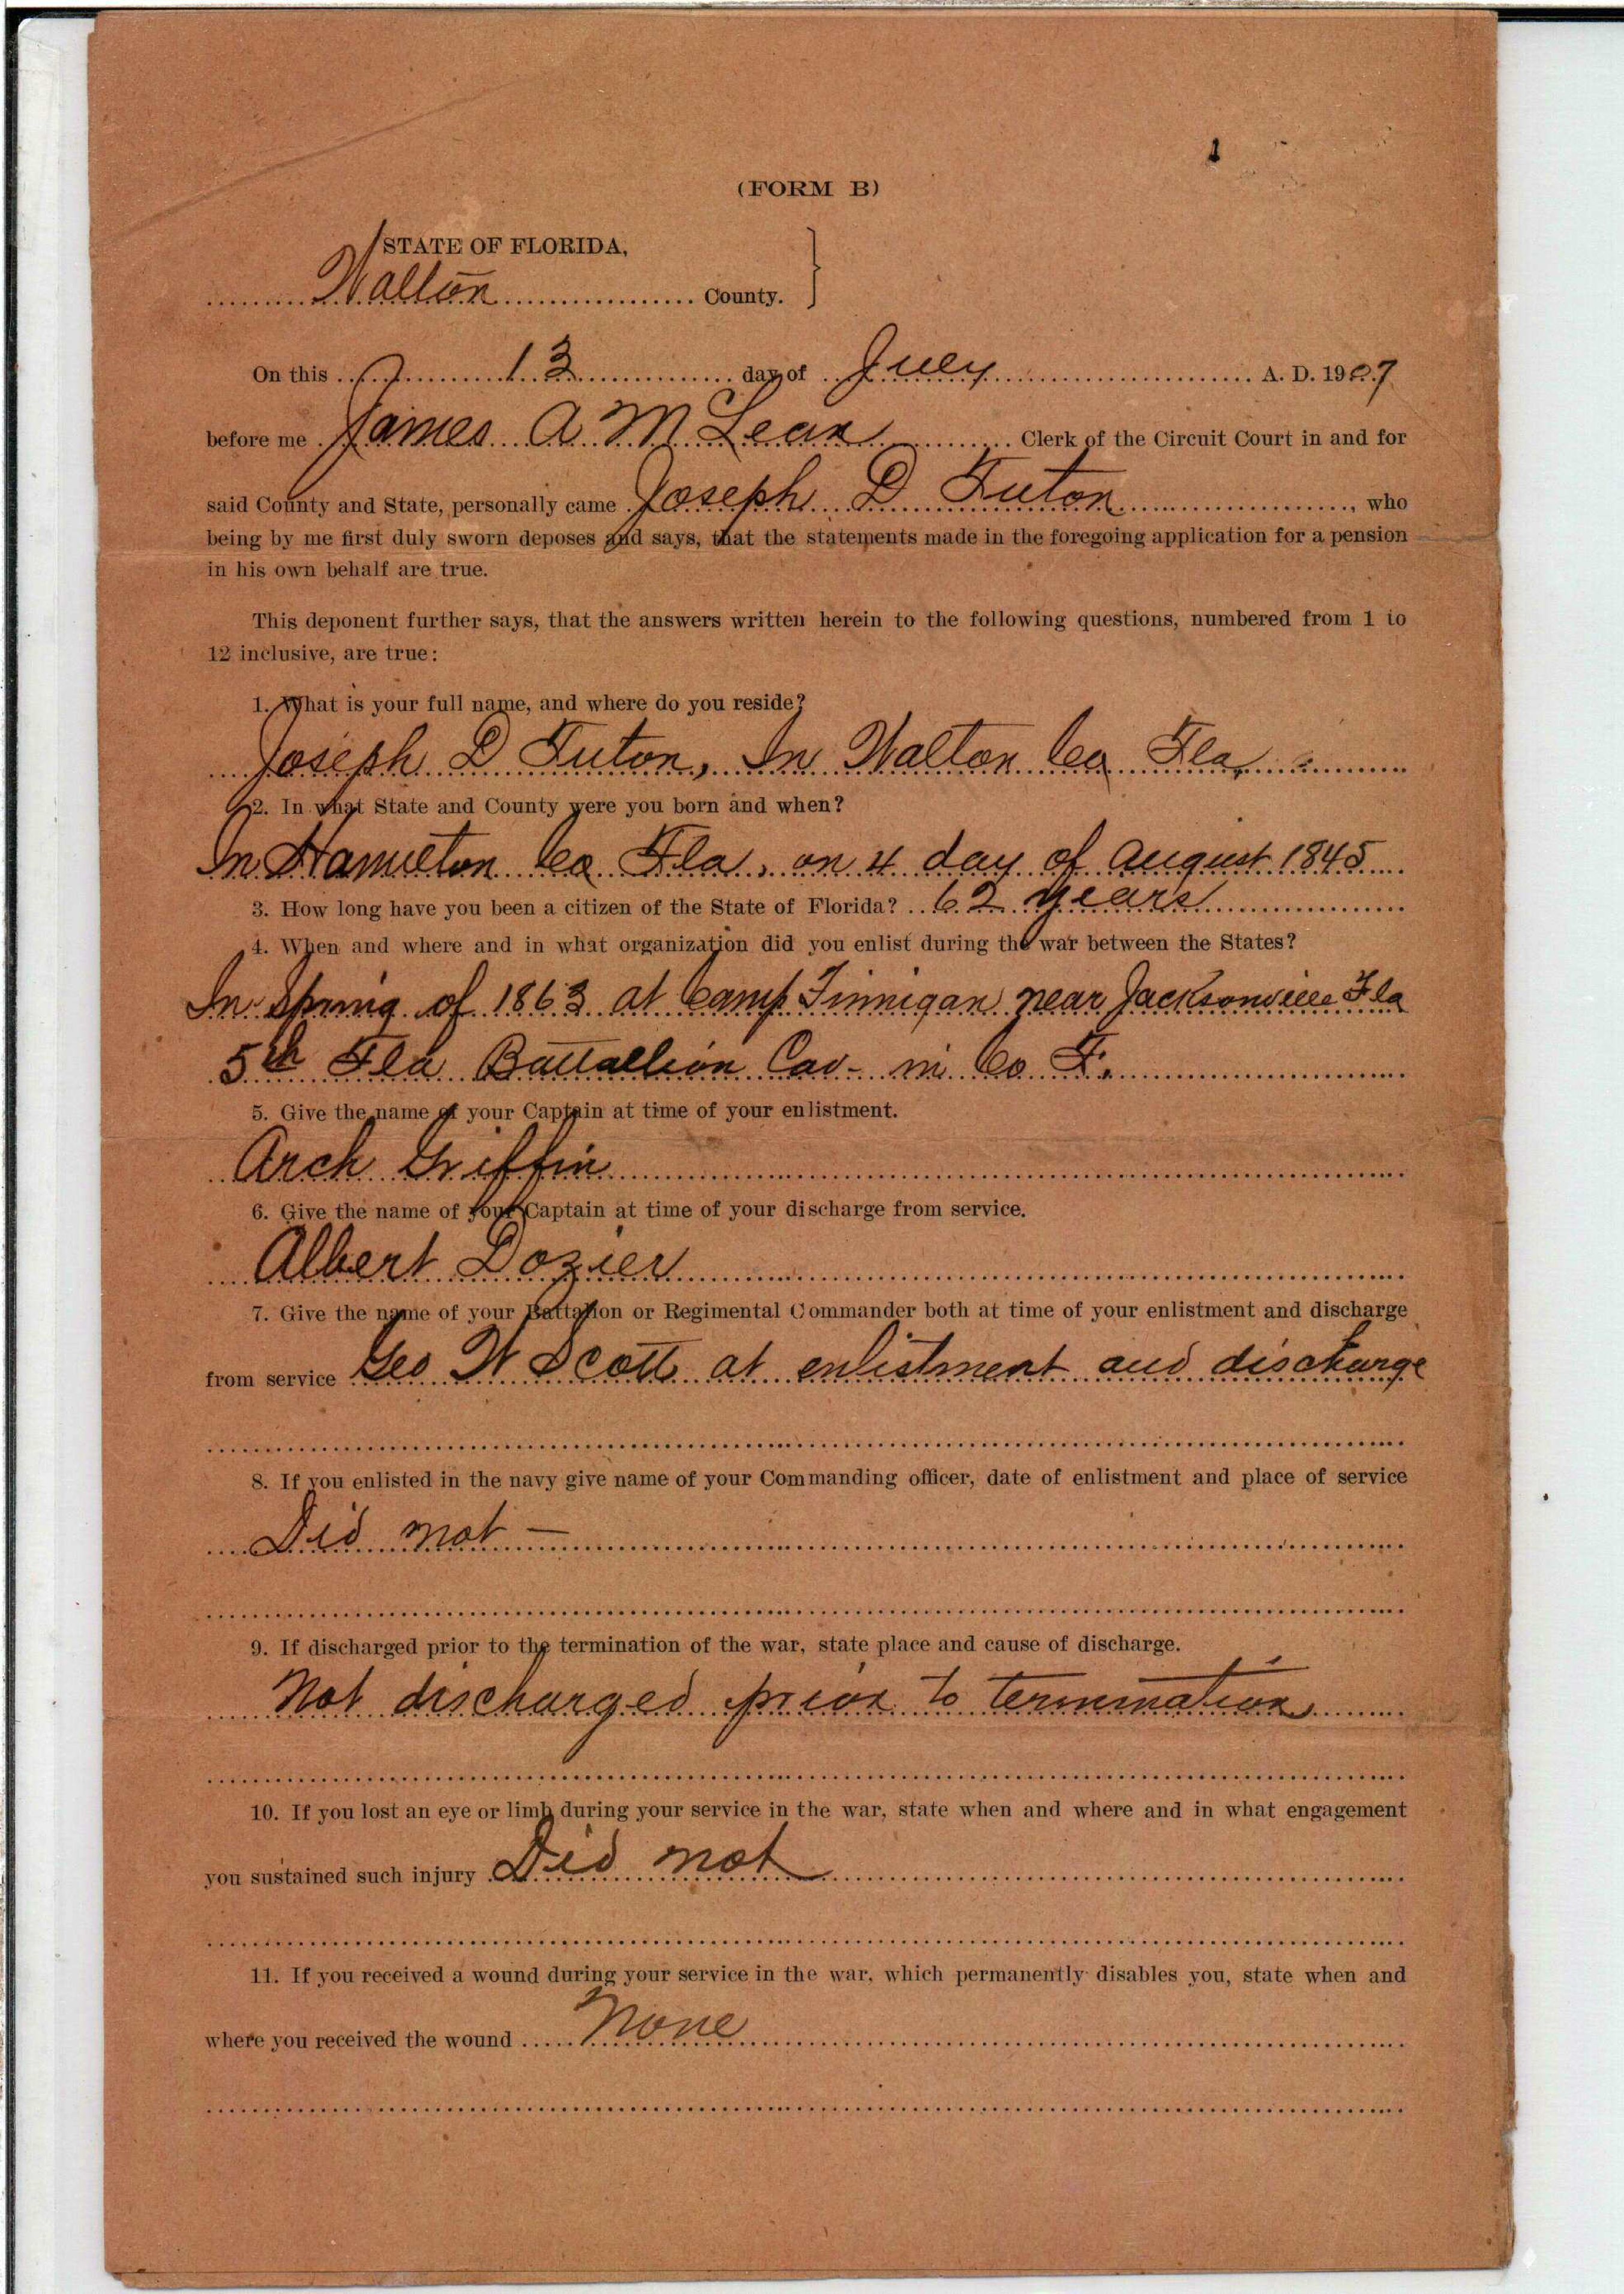 (FORM B)
STATE OF FLORIDA,
Walton County.
On this 13 day of July A. D. 1907
before me James A McLean Clerk of the Circuit Court in and for
said County and State, personally came Joseph D Futon, who
being by me first duly sworn deposes and says, that the statements made in the foregoing application for a pension
in his own behalf are true.
This deponent further says, that the answers written herein to the following questions, numbered from 1 to
12 inclusive, are true:
1. What is your full name, and where do you reside?
Joseph D Futon, In Walton Co Fla,
2. In what State and County were you born and when?
In Hamilton Co Fla, on 4 day of August 1845
3. How long have you been a citizen of the State of Florida? 62 years
4. When and where and in what organization did you enlist during the war between the States?
In Spring of 1863 at Camp Finnigan near Jacksonville Fla
5th Fla Battallion Cav- in Co F.
5. Give the name of your Captain at time of your enlistment.
Arch Griffin
6. Give the name of your Captain at time of your discharge from service.
Albert Dozier
7. Give the name of your Battalion or Regimental Commander both at time of your enlistment and discharge
from service Geo W Scott at enlistment and discharge
8. If you enlisted in the navy give name of your Commanding officer, date of enlistment and place of service
Did not —
9. If discharged prior to the termination of the war, state place and cause of discharge.
Not discharged prior to termination
10. If you lost an eye or limb during your service in the war, state when and where and in what engagement
you sustained such injury Did not
11. If you received a wound during your service in the war, which permanently disables you, state when and
where you received the wound None